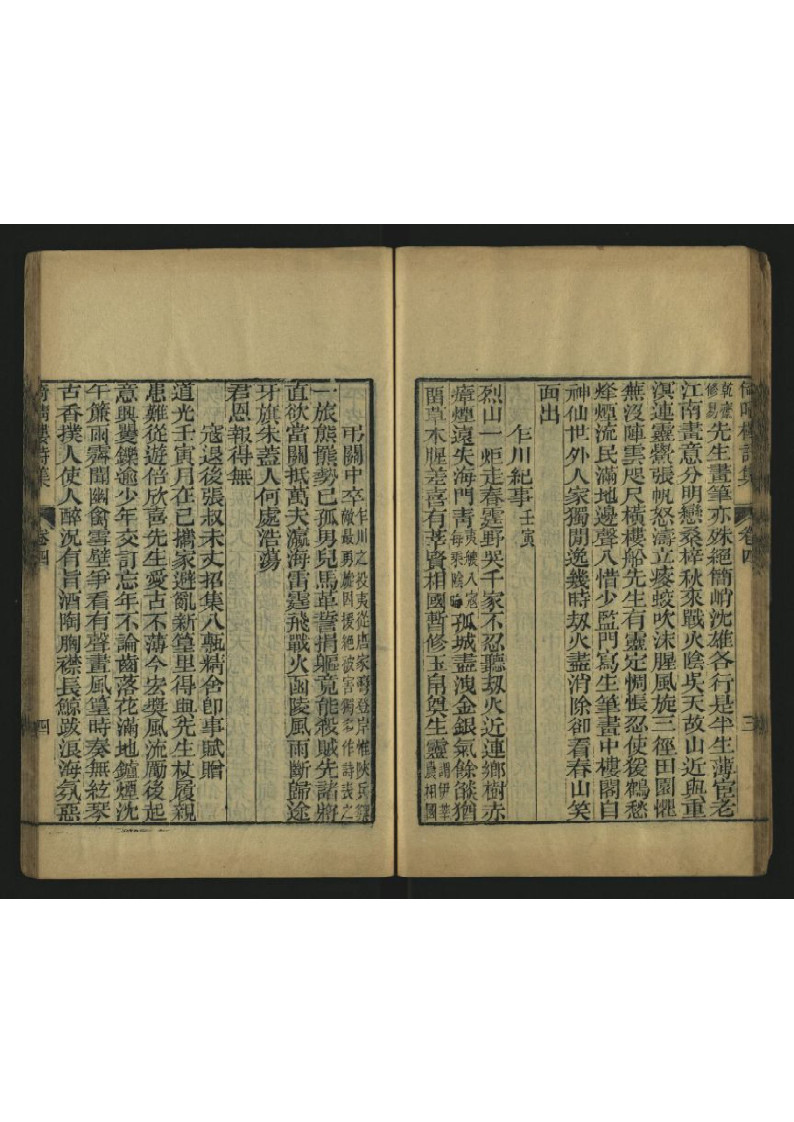 先生畫筆亦殊絕簡峭沈雄各行是半生薄宦老
江南畫意分明戀桑梓秋來戰火陰吳天故山近與重
溟連靈鼉張帆怒濤立痿蛟吹沫腥風旋三徑田園慨
蕪沒陣雲咫尺橫樓船先生有靈定惆悵忍使援鶴愁
烽煙流民滿地邊聲入惜少監門寫生筆畫中樓閣自
神仙世外人家獨閒逸幾時刼火盡消除卻看春山笑
面出
乍川紀事 壬寅
烈山一炬走春霆野哭千家不忍聽刼火近連鄉樹赤
瘴煙遠失海門青 孤城盡洩金銀氣餘燄猶
圅草木腥差喜有莘賢相國暫修玉帛奠生靈
卷四
三
弔關中卒 乍川之役夷從唐家灣登岸惟陝民
敵最勇繼因援絕被害獨多作詩哀之
一旅熊羆勢已孤男兒馬革誓捐軀竟能殺賊先諸將
直欲當關抵萬夫瀛海雷霆飛戰火函陵風雨斷歸途
牙旗朱蓋人何處浩蕩
君恩報得無
寇退後張叔未丈招集八甎精舍卽事賦贈
道光壬寅月在已攜家避亂新篁里得與先生杖履親
患難從遊倍欣喜先生愛古不薄今宏奬風流勵後起
意興矍鑠逾少年交訂忘年不論齒落花滿地鑪煙沈
午簾雨霽聞幽禽雲壁爭看有聲畫風篁時奏無絃琴
古香撲人使人醉況有旨酒陶胸襟長鯨跋浪海氛惡
卷四
四